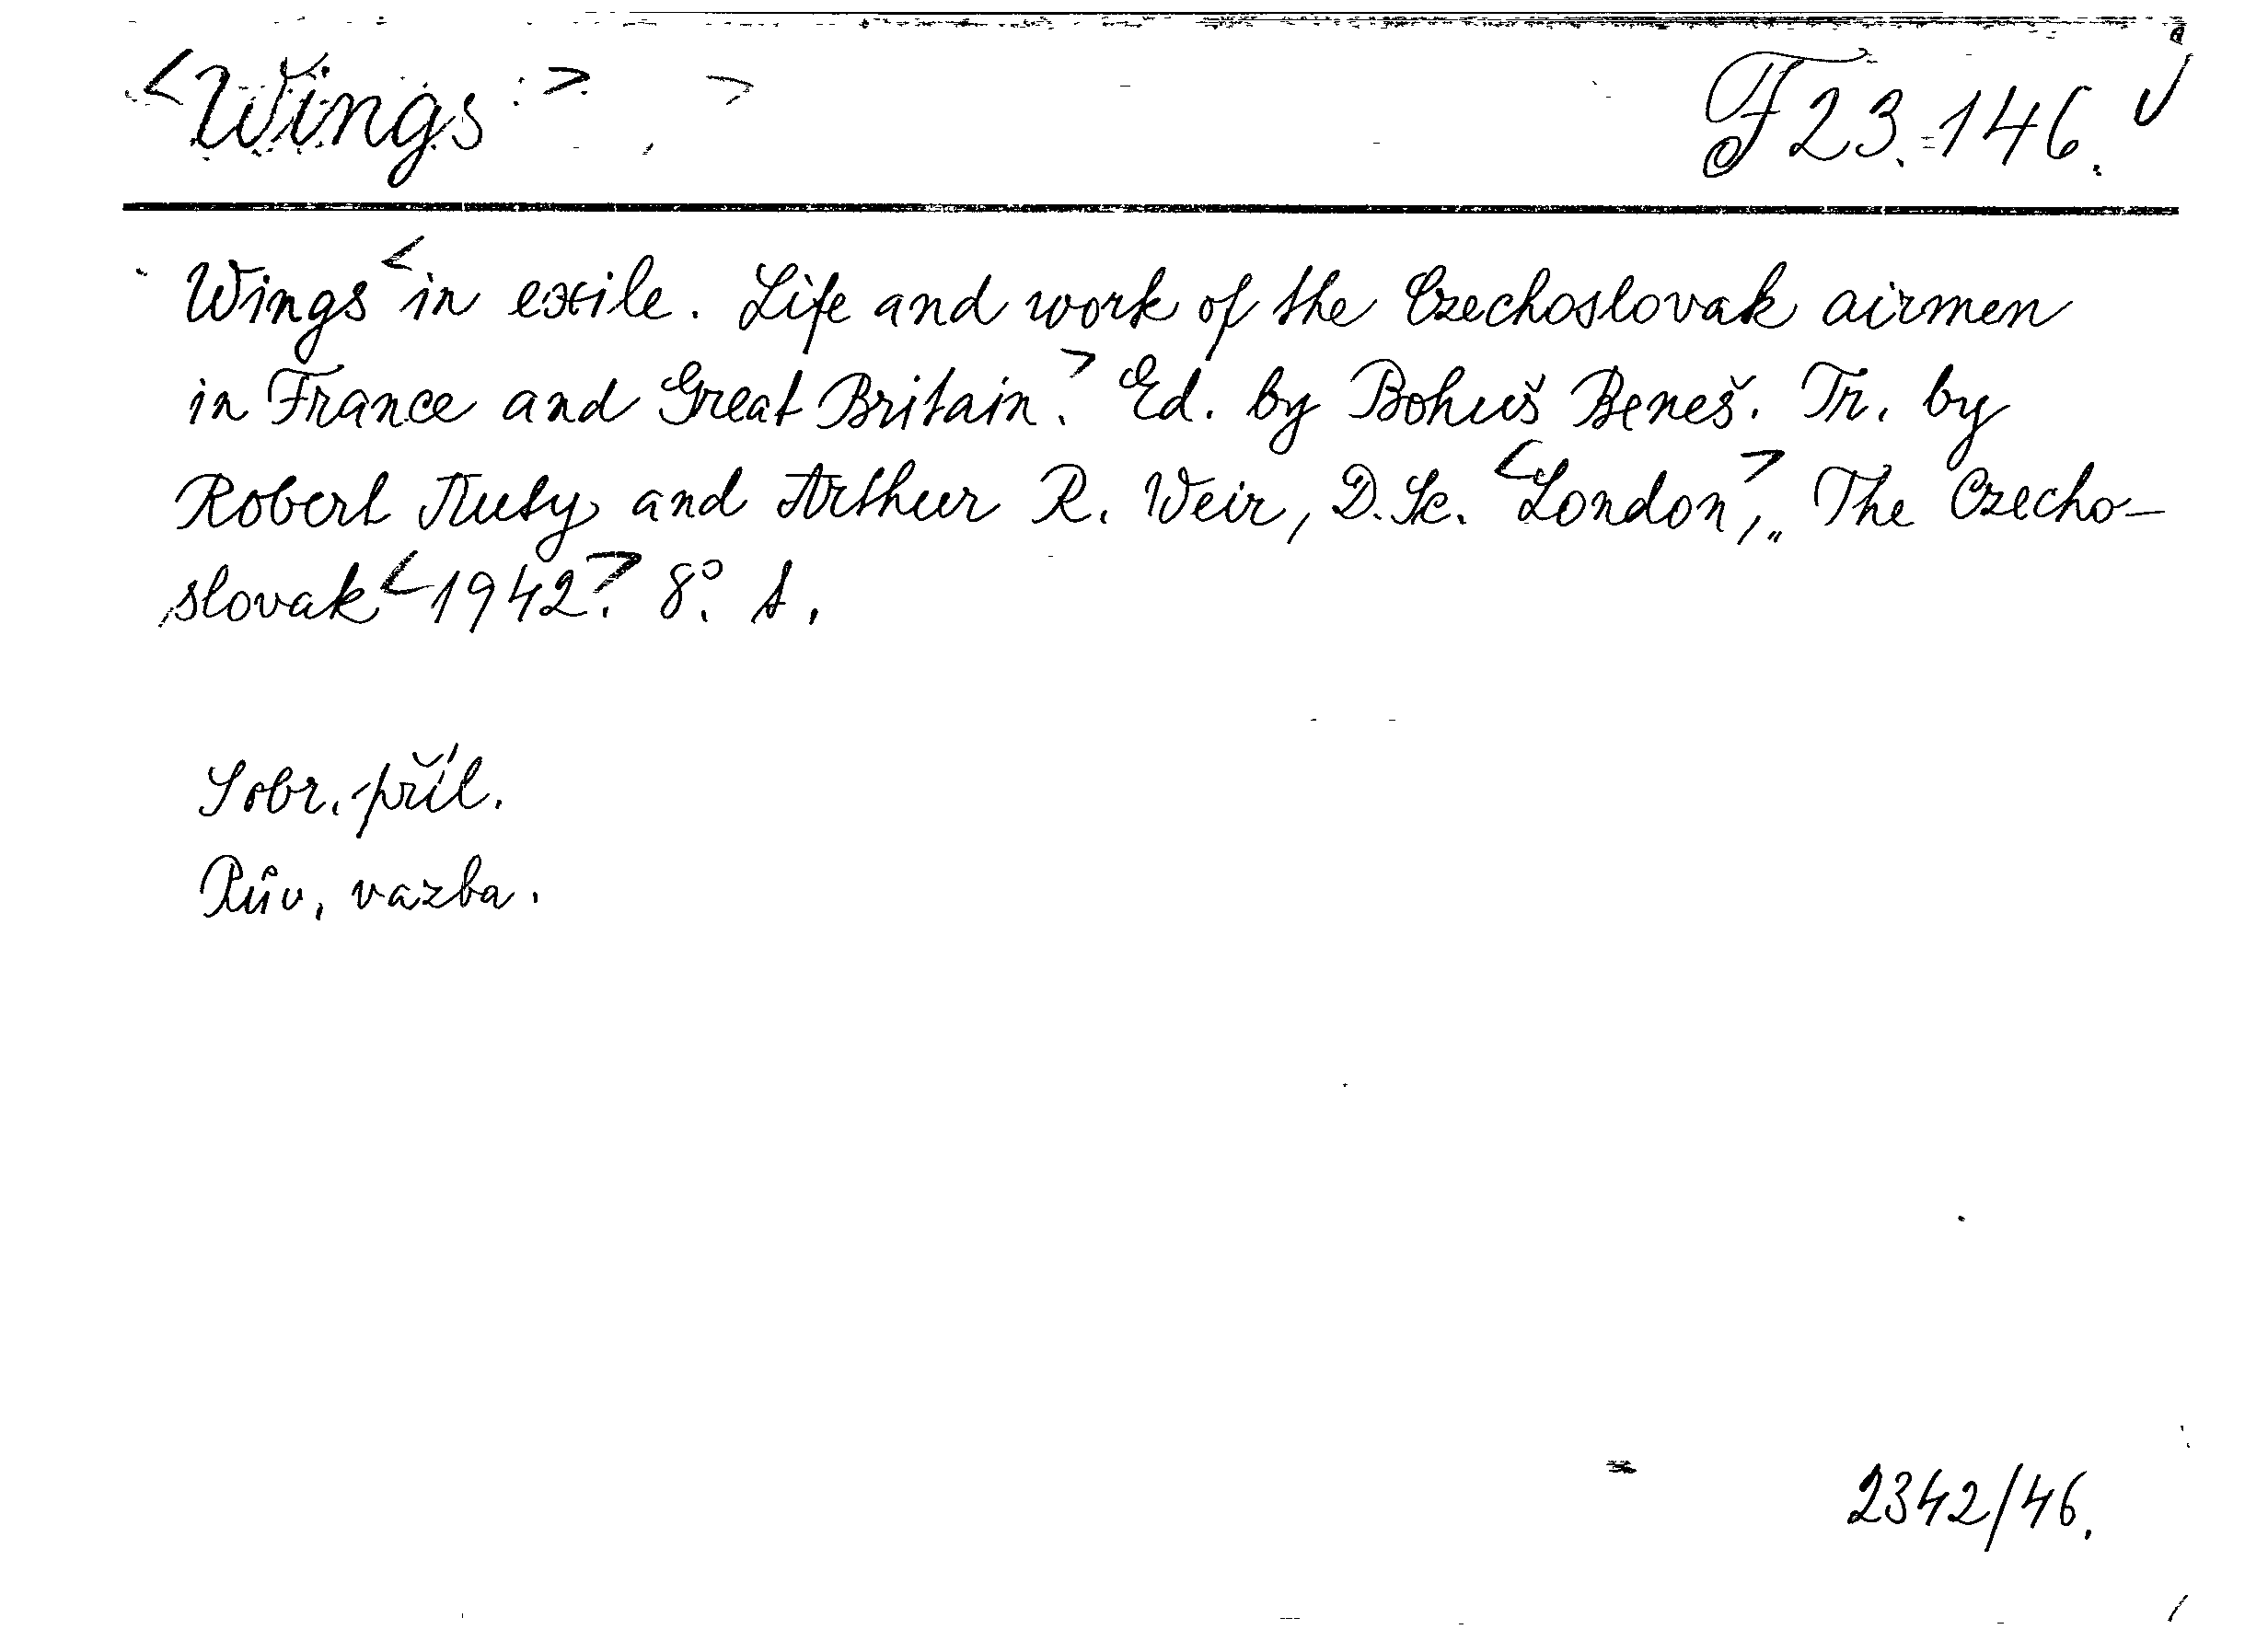 <Wings> F 23.146.
Wings <in exile. Life and work of the Czechoslovak airmen
in France and Great Britain.> Ed. by Bohuš Beneš. Tr. by
Robert and Arthur R. Weir, D. Sc. <London>, „The Czecho-
slovak <1942>. 8°.
S obr. příl.
Pův. vazba.
2342/46.